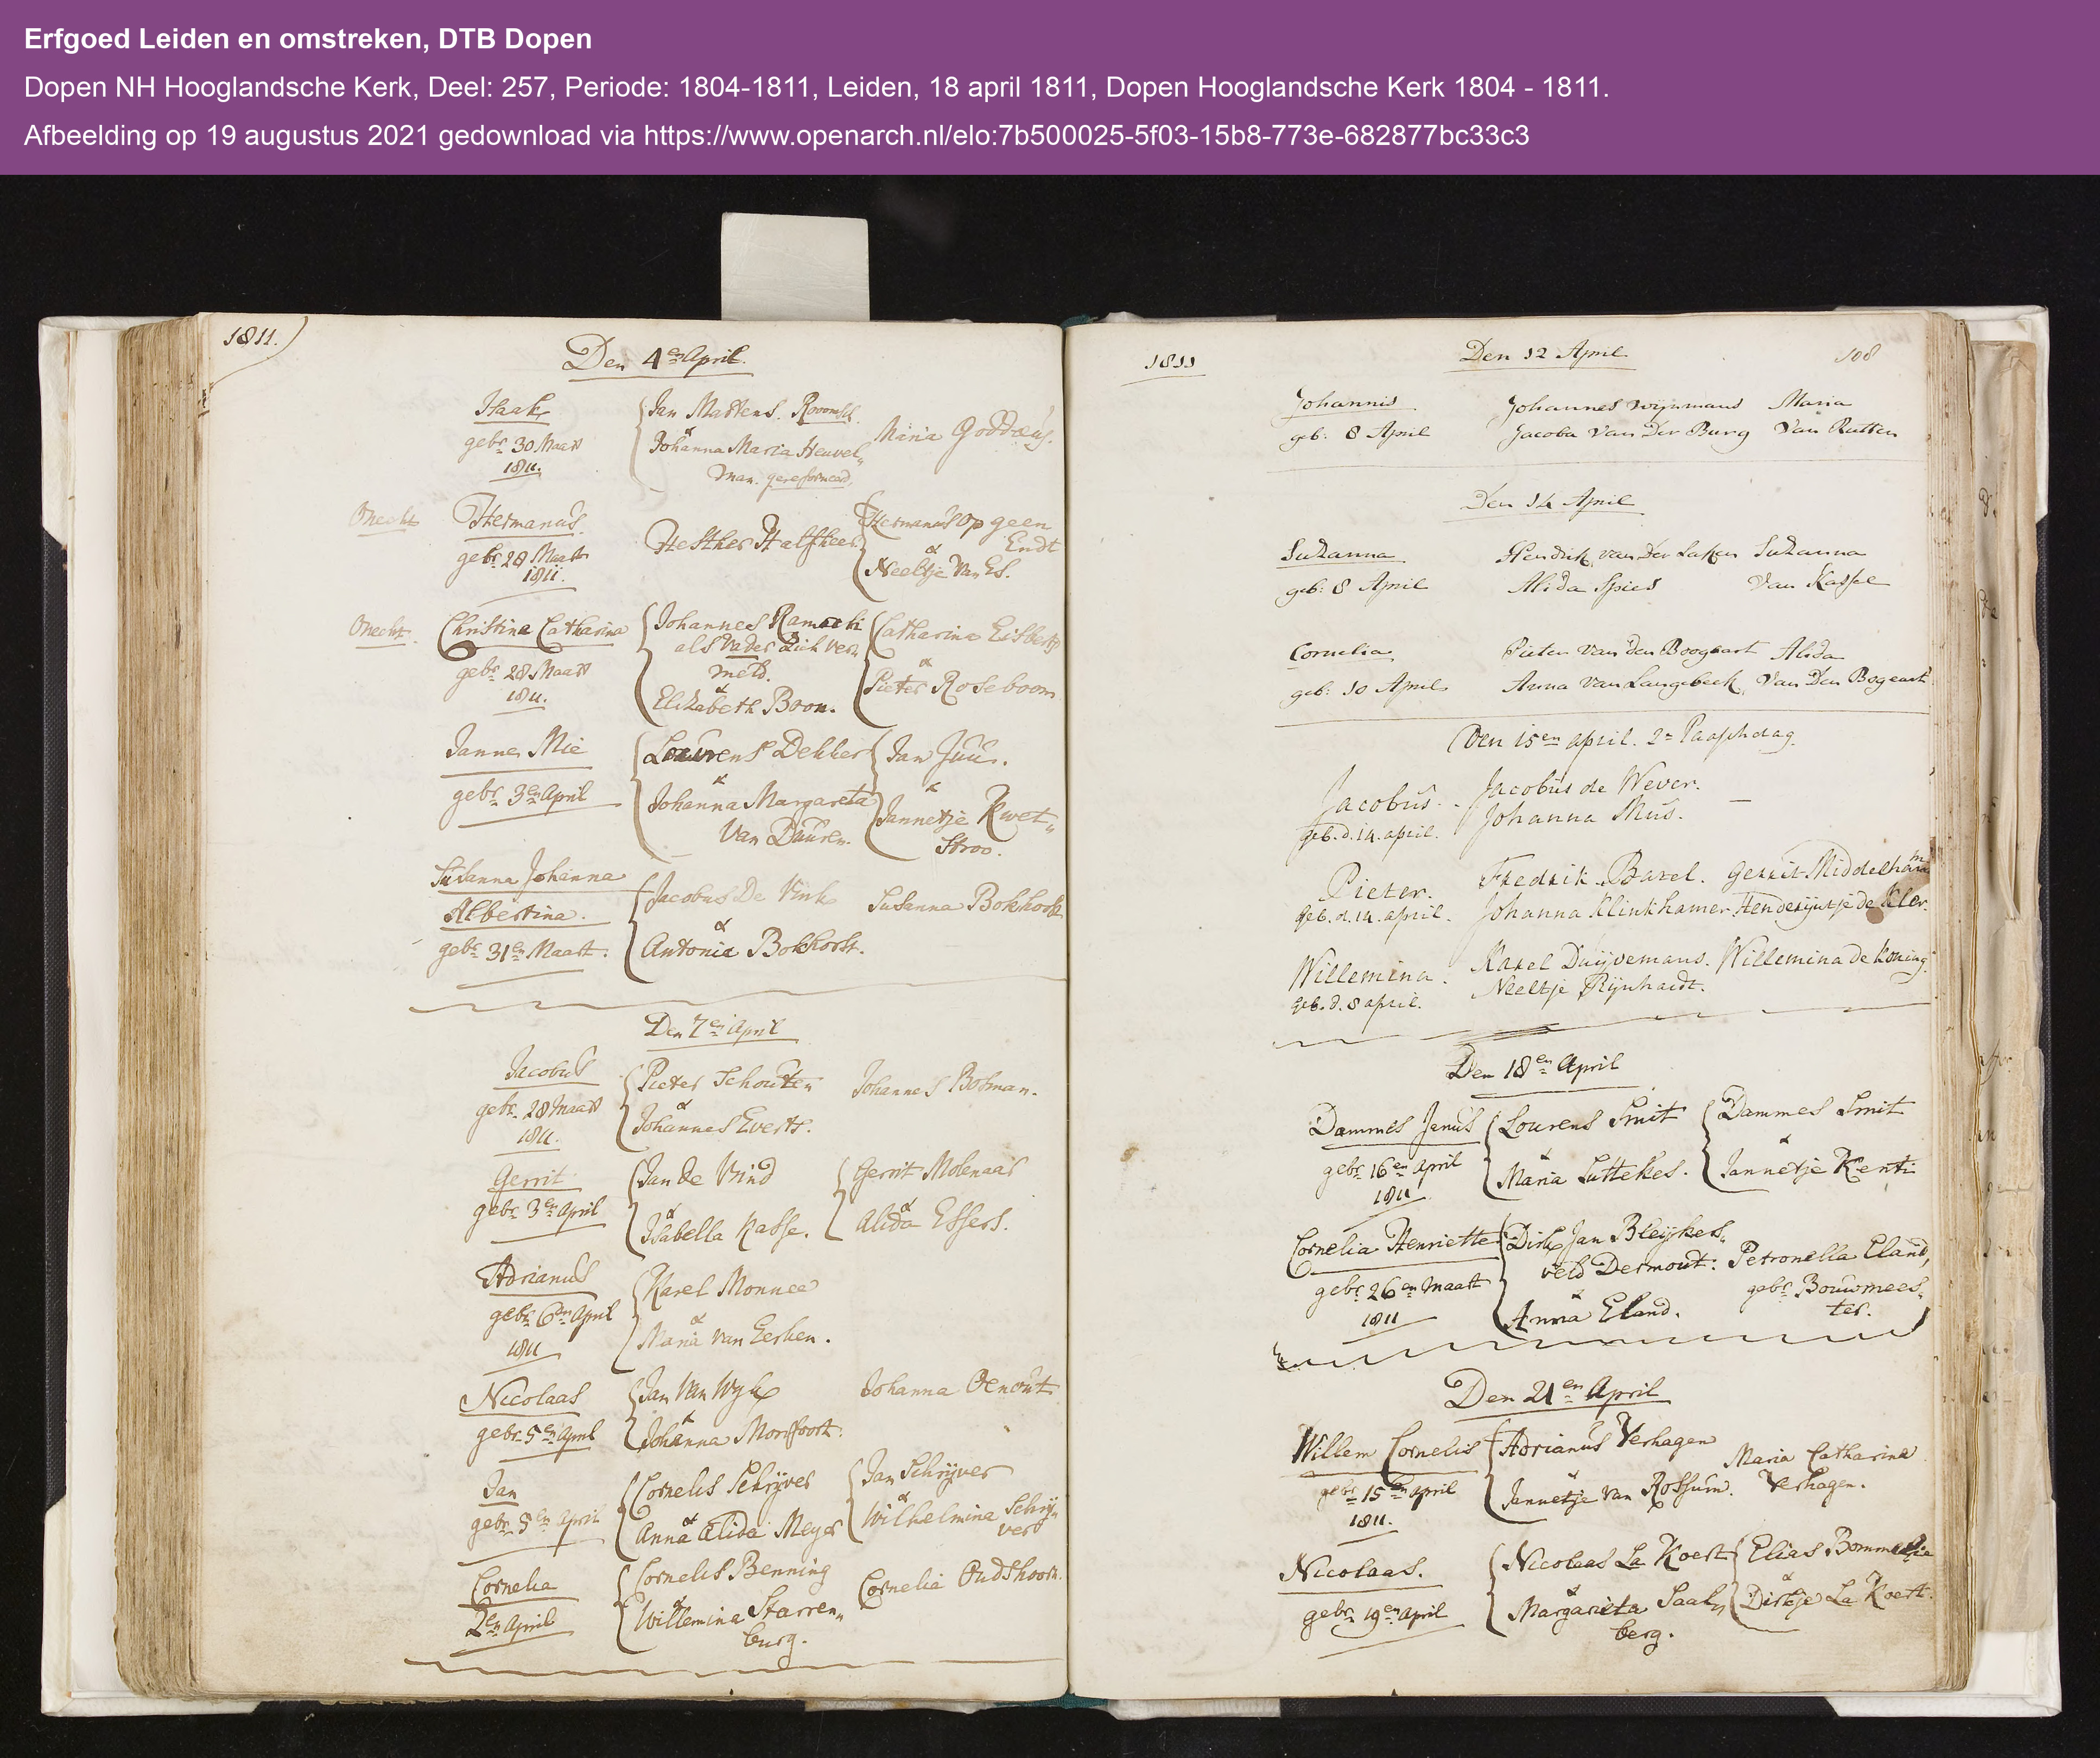 Erfgoed Leiden en omstreken, DTB Dopen
Dopen NH Hooglandsche Kerk, Deel: 257, Periode: 1804-1811, Leiden, 18 april 1811, Dopen Hooglandsche Kerk 1804 - 1811.
Afbeelding op 19 augustus 2021 gedownload via https://www.openarch.nl/elo:7b500025-5f03-15b8-773e-682877bc33c3
1811.
Den 4en April.
Isaak
gebr 30 Maart
1811.
Jan Martens. Roomsch.
&
Johanna Maria Heuvel„
man. gereformeerd,
Maria Goddæus.
Onecht
Hermanus
gebr 28 Maart
1811.
Hesther Halfkees
Hermanus Op geen
Endt
&
Neeltje Van Es.
Onecht.
Christina Catharina
gebr 28 Maart
1811.
Johannes
als Vader zich ver„
meld.
&
Elizabeth Boon.
Catharina
&
Pieter Roseboom
Janne Mie
gebr 3en April
Lourens Dekker
&
Johanna Margareta
Van Duuren.
Jan Juu.
&
Jannetje Kwet„
stroo.
Susanna Johanna
Albertina.
gebr 31en Maart.
Jacobus De Vink
&
Antonia Bokhorst.
Susanna Bokhorst
Den 7en April
Jacobus
gebr 28 Maart
1811.
Pieter Schouten
&
Johannes Everts.
Johannes Bosman.
Gerrit
gebr 3en April
Jan de Vrind
&
Isabella Kasse.
Gerrit Molenaar
&
Alida Essers.
Adrianus
gebr 6en April
1811
Karel Monnee
&
Maria van Eerken.
Nicolaas
gebr 5en April
Jan Van Wyk
&
Johanna Monfoort.
Johanna Oenout
Jan
gebr 5en April
Cornelis Schrijver
&
Anna Alida Meyer
Jan Schrijver
&
Wilhelmina Schrij„
vers
Cornelia
2en April
Cornelis Benning
&
Willemina Starren„
burg.
Cornelia Oudshoorn.
1811
Den 12 April
108
Johannis
geb: 8 April
Johannes Wijnmans
Jacoba Van Der Burg
Maria
Van Rutten
Den 14 April
Suzanna
geb: 8 April
Hendrik van der Laken
Alida Spies
Suzanna
Van Kassel
Cornelia
geb: 10 April
Pieter van den Boogaart
Anna van Langebeek
Alida
Van Den Bogaart
Den 15en april. 2e Paaschdag.
Jacobus.
geb. d. 14. april.
Jacobus de Wever.
Johanna Mus.
—
Pieter.
geb. d. 14. april.
Fredrik Barel.
Johanna Klinkhamer.
Gerrit Middelham
Henderijntje de Kler.
Willemina.
geb. d. 8 april.
Karel Duijvemans.
Neeltje Rijnhardt.
Willemina de Koning.
Den 18en April
Dammes Janus
gebr 16en April
1811
Lourens Smit
&
Maria Luttekes.
Dammes Smit
&
Jannetje Kenti
Cornelia Henriette
gebr 26en Maart
1811
Dirk Jan Bleyskes„
veld Dermout.
&
Anna Eland.
Petronella Eland,
gebr Bouwmees„
ter.
Den 21en April
Willem Cornelis
gebr 15en April
1811.
Adrianus Verhagen
&
Jannetje van Rossum.
Maria Catharina
Verhagen.
Nicolaas.
gebr 19en April
Nicolaas La Koert
&
Margarieta Saal„
berg.
Elias
&
Dirkje La Koert.